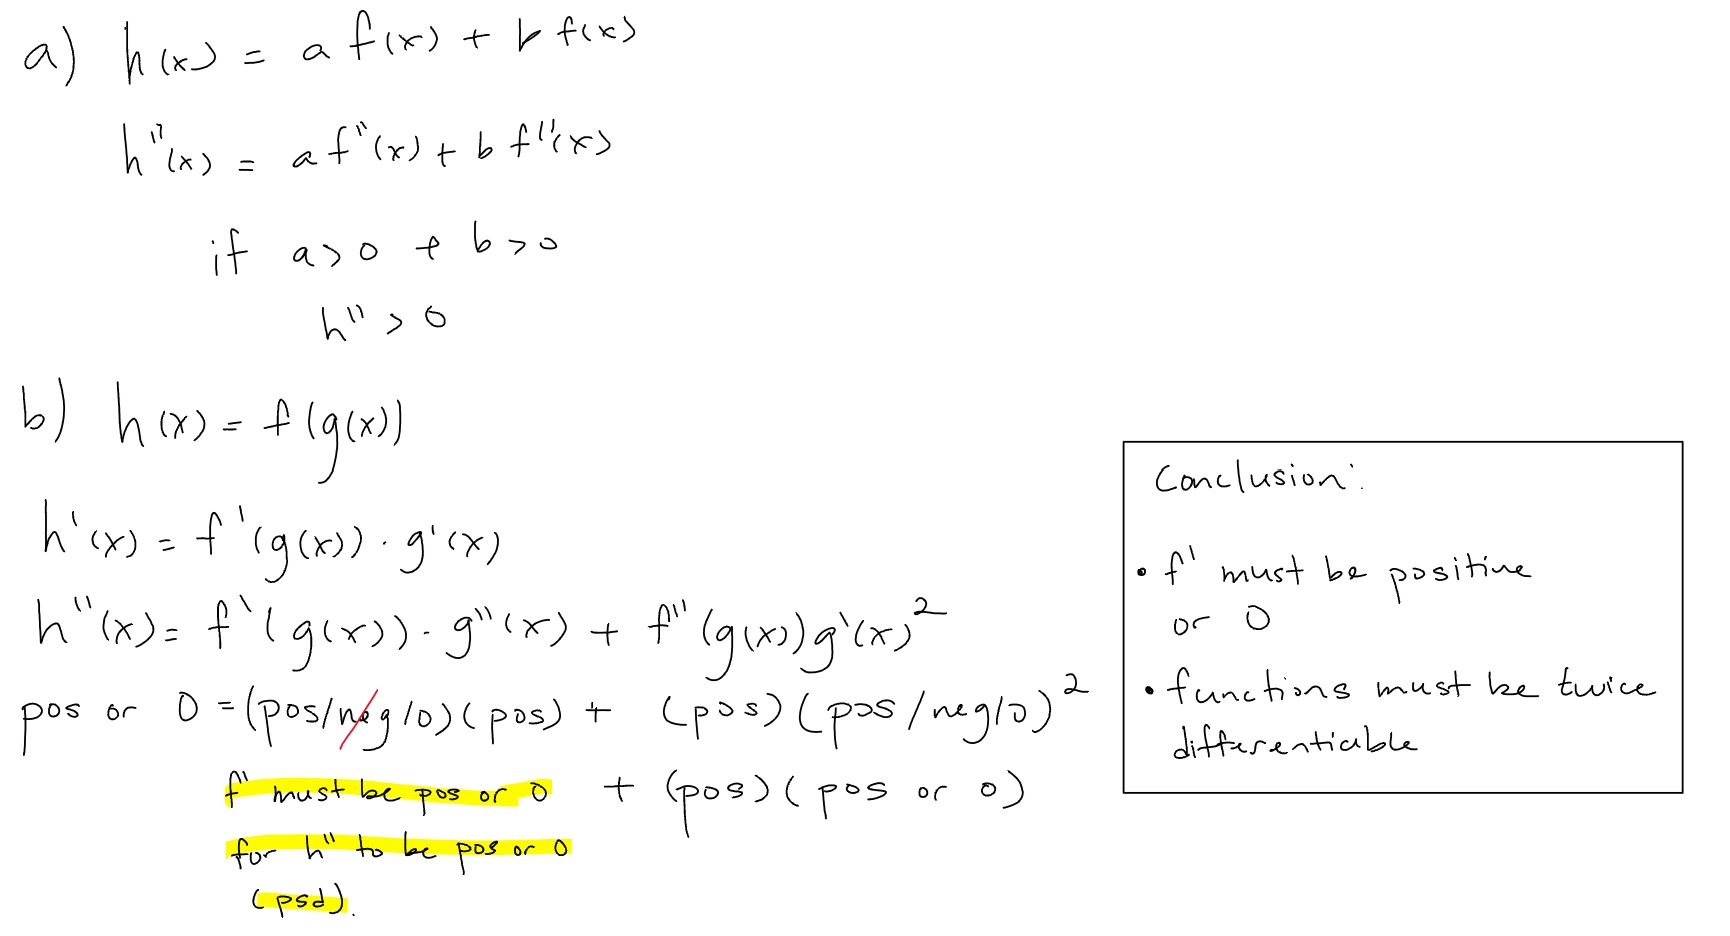 a) h(x) = a f(x) + b f(x)
h''(x) = a f''(x) + b f''(x)
if a>0 + b>0
h'' > 0
b) h(x) = f(g(x))
h'(x) = f'(g(x)) · g'(x)
h''(x) = f'(g(x)) · g''(x) + f''(g(x)) g'(x)²
pos or 0 = (pos/neg/0)(pos) + (pos)(pos/neg/0)²
f' must be pos or 0 + (pos)(pos or 0)
for h'' to be pos or 0
(psd).
Conclusion:
• f' must be positive
or 0
• functions must be twice
differentiable